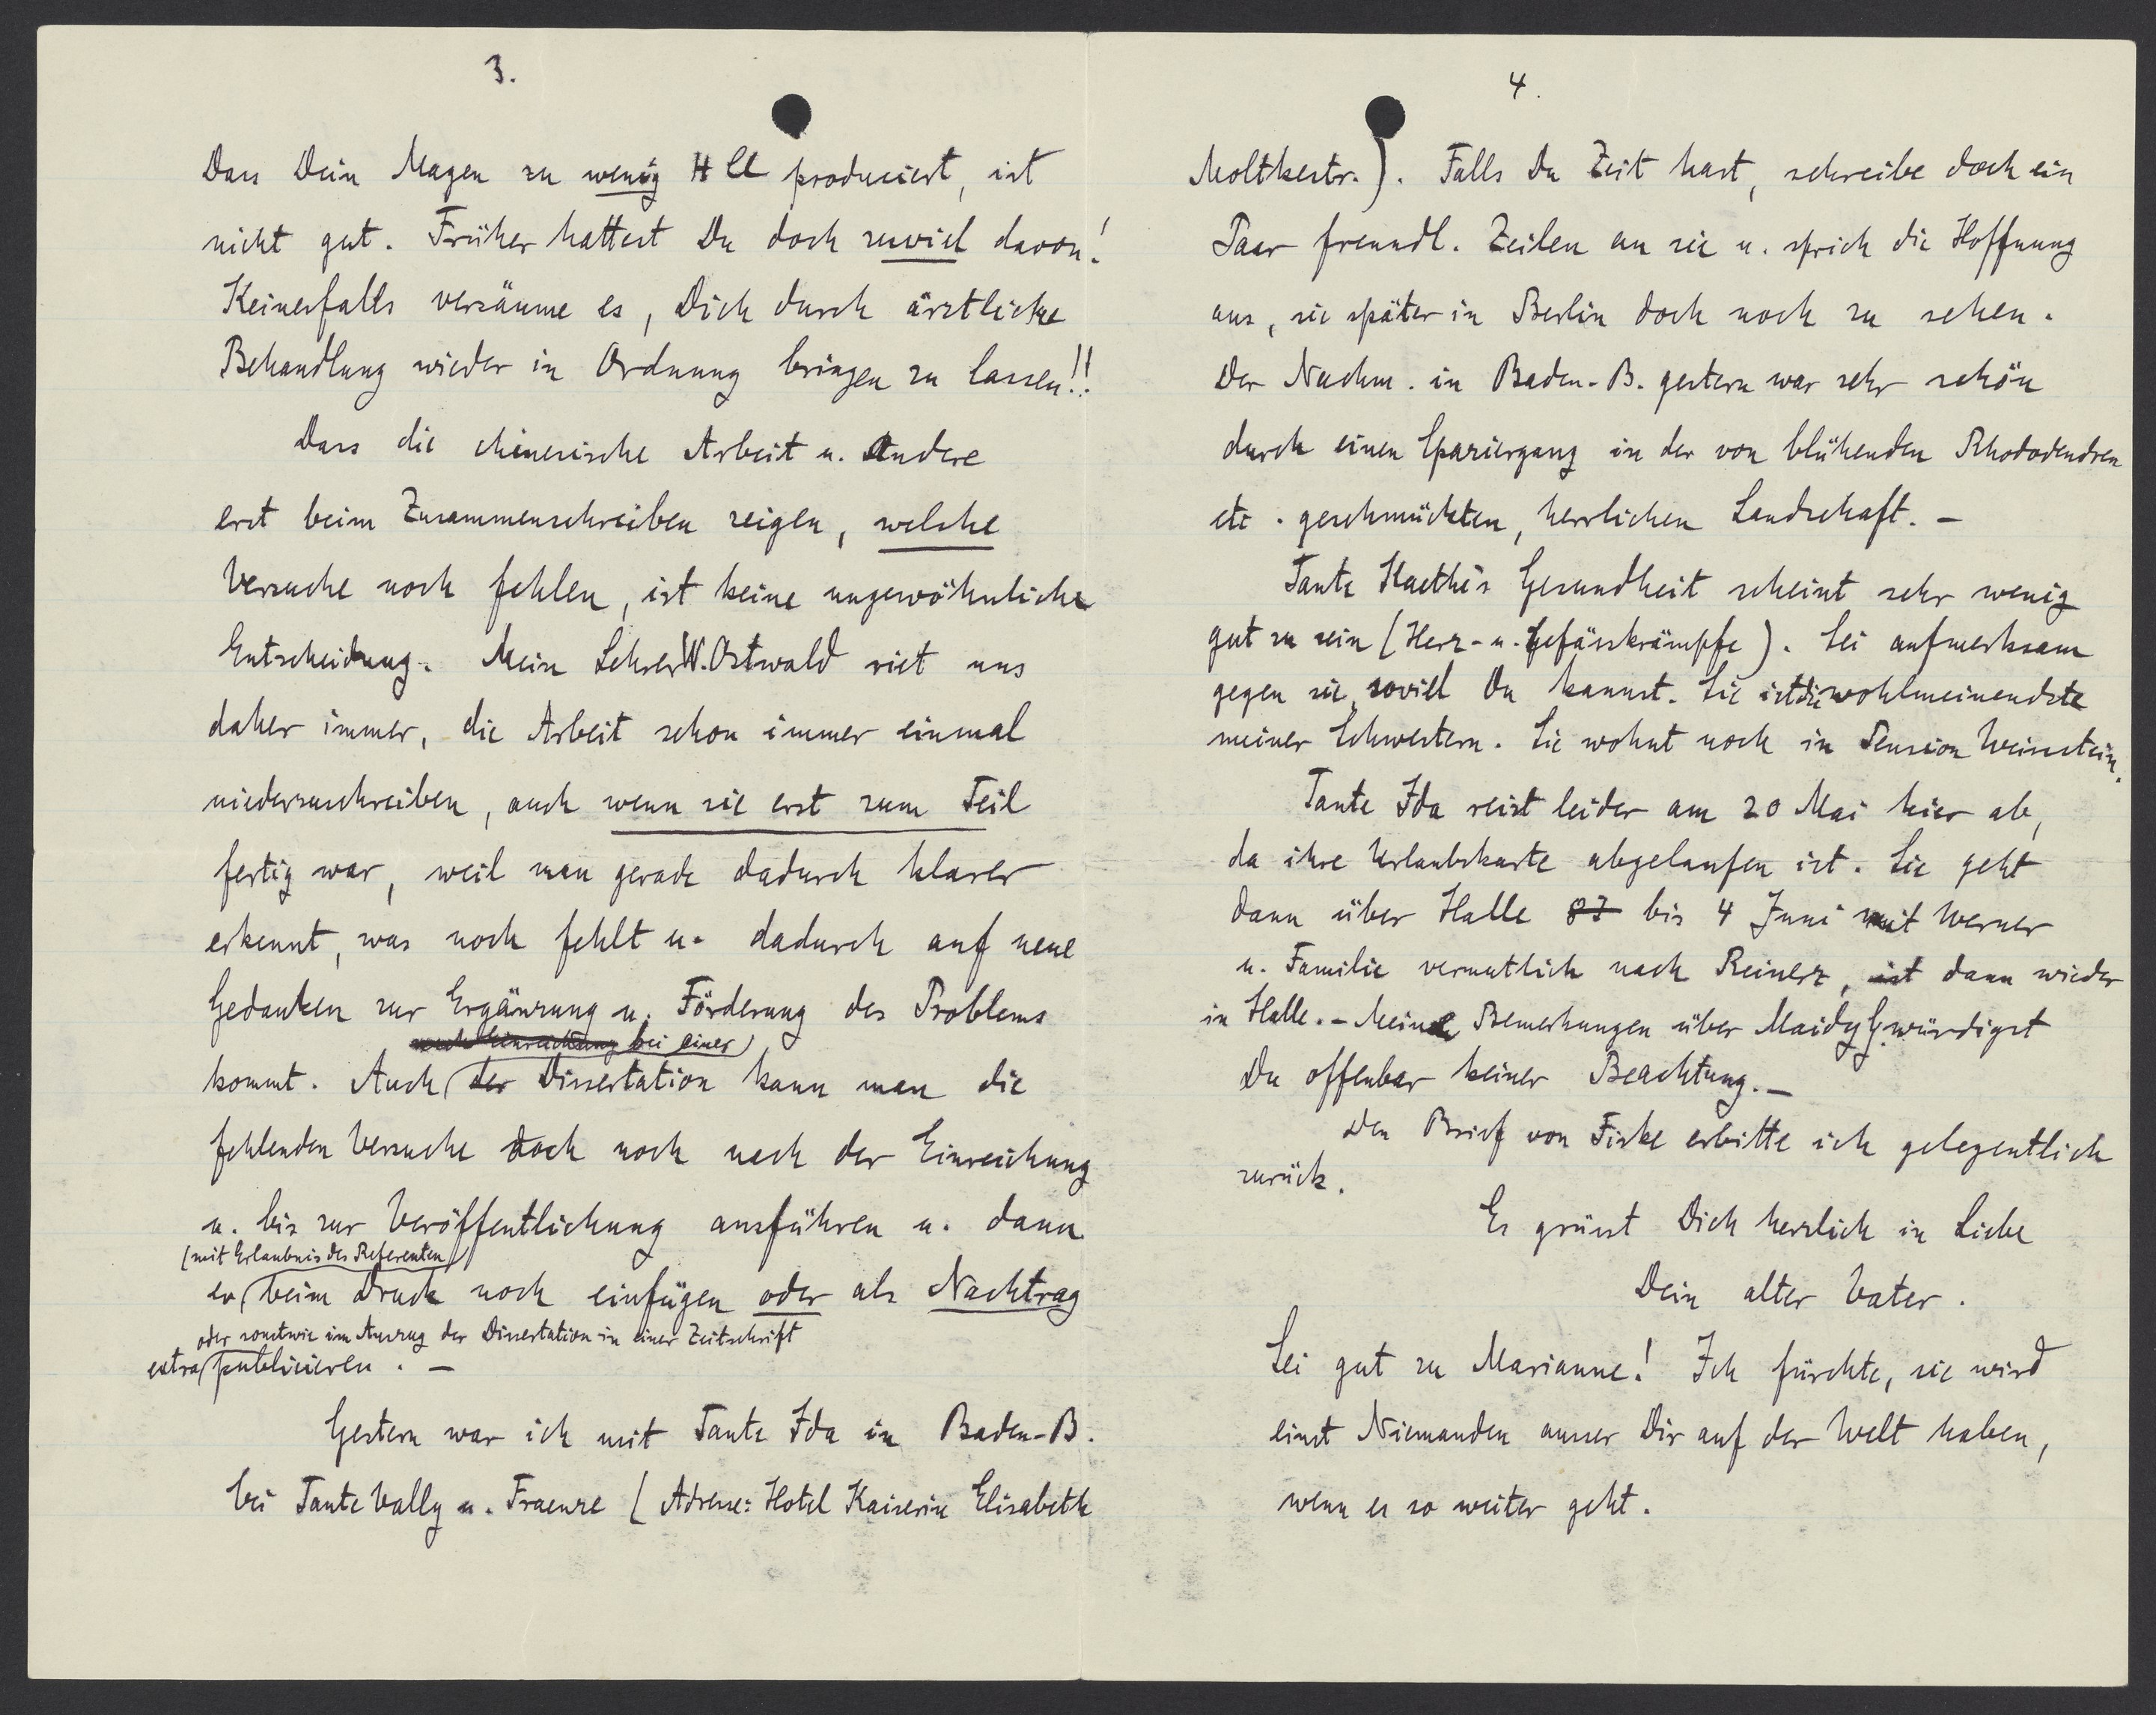 3.
Dass Dein Magen zu wenig HCl produciert, ist
nicht gut. Früher hattest Du doch zuviel davon!
Keinesfalls versäume es, Dich durch ärztliche
Behandlung wieder in Ordnung bringen zu lassen!!
Dass die chinesische Arbeit u. Andere
erst beim Zusammenschreiben zeigen, welche
Versuche noch fehlen, ist keine ungewöhnliche
Entscheidung. Mein Lehrer W. Ostwald riet uns
daher immer, die Arbeit schon immer einmal
niederzuschreiben, auch wenn sie erst zum Teil
fertig war, weil man gerade dadurch klarer
erkennt, was noch fehlt u. dadurch auf neue
Gedanken zur Ergänzung u. Förderung des Problems
nach Einreichung bei einer
kommt. Auch der Dissertation kann man die
fehlenden Versuche doch noch nach der Einreichung
u. bis zur Veröffentlichung ausführen u. dann
(mit Erlaubnis des Referenten)
ev. beim Druck noch einfügen oder als Nachtrag
oder sonstwie im Auszug der Dissertation in einer Zeitschrift
extra publicieren. –
Gestern war ich mit Tante Ida in Baden-B.
bei Tante Vally u. Fraenze (Adresse: Hotel Kaiserin Elisabeth
4.
Moltkestr.). Falls Du Zeit hast, schreibe doch ein
Paar freundl. Zeilen an sie u. sprich die Hoffnung
aus, sie später in Berlin doch noch zu sehen.
Der Nachm. in Baden-B. gestern war sehr schön
durch einen Spaziergang in der von blühenden Rhododendren
etc. geschmückten, herrlichen Landschaft. –
Tante Kaethe's Gesundheit scheint sehr wenig
gut zu sein (Herz- u. Gefässkrämpfe). Sei aufmerksam
gegen sie, soviel Du kannst. Sie ist die wohlmeinendste
meiner Schwestern. Sie wohnt noch in Pension Weisstein.
Tante Ida reist leider am 20 Mai hier ab,
da ihre Urlaubskarte abgelaufen ist. Sie geht
dann über Halle bis 4 Juni mit Werner
u. Familie vermutlich nach Reinerz, ist dann wieder
in Halle. – Meine Bemerkungen über Maidy G. würdigst
Du offenbar keiner Beachtung. –
Den Brief von Fiske erbitte ich gelegentlich
zurück.
Es grüsst Dich herzlich in Liebe
Dein alter Vater.
Sei gut zu Marianne! Ich fürchte, sie wird
einst Niemanden ausser Dir auf der Welt haben,
wenn es so weiter geht.